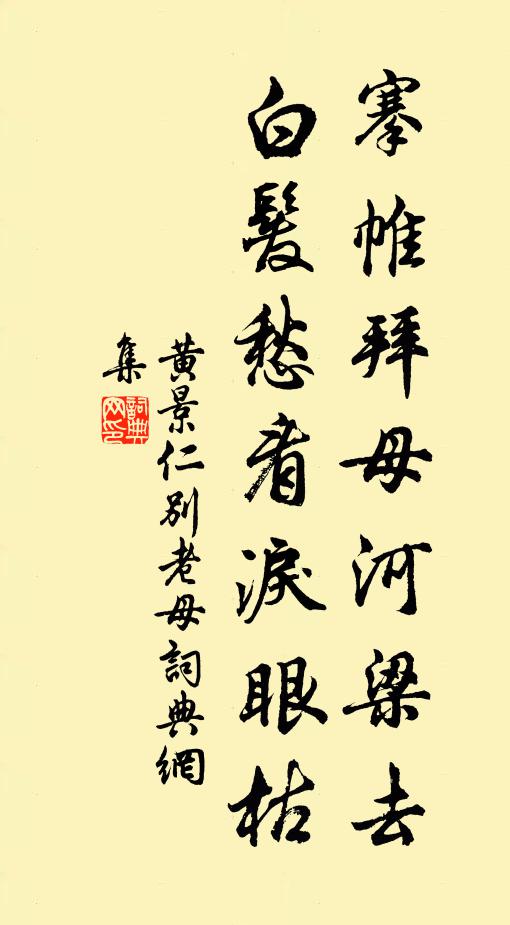 搴帷拜母河梁去
白髮愁看淚眼枯
黃景仁別老母詞典網
集
詞典
网印